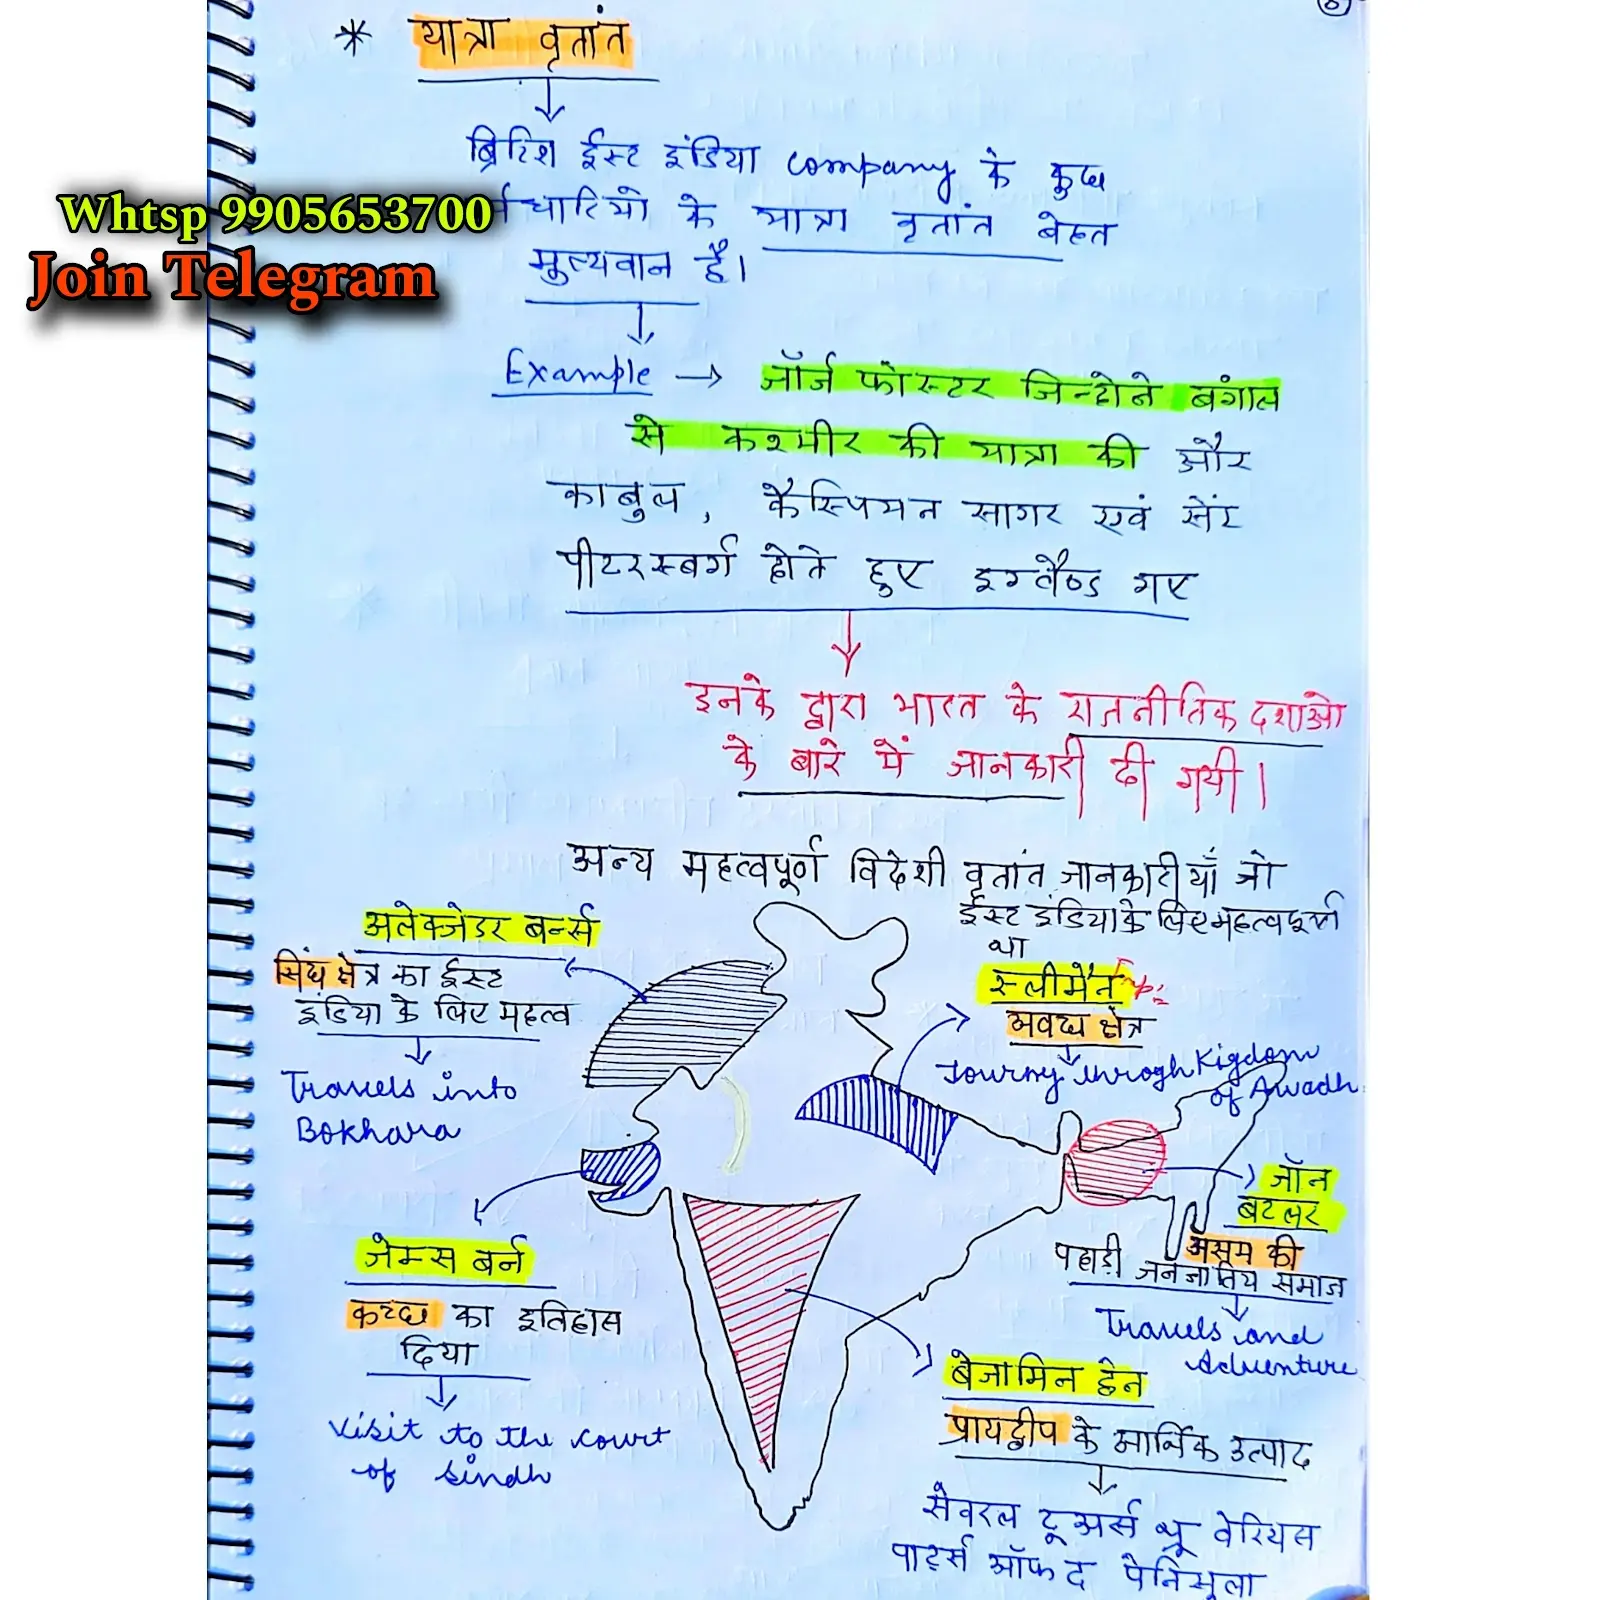 * यात्रा वृतांत
ब्रिटिश ईस्ट इंडिया company के कुछ
Whtsp 9905653700
र्मचारियो के यात्रा वृतांत बेहत
Join Telegram
मुल्यवान है।
Example → जॉर्ज फोस्टर जिन्होने बंगाल
से कश्मीर की यात्रा की और
काबुल, कैस्पियन सागर एवं सेंट
पीटरस्बर्ग होते हुए इग्लैण्ड गए
इनके द्वारा भारत के राजनीतिक दशाओ
के बारे में जानकारी दी गयी।
अन्य महत्वपूर्ण विदेशी वृतांत जानकारीयाँ जो
ईस्ट इंडिया के लिए महत्वपूर्ण
था
अलेक्जेडर बर्न्स
सिंध क्षेत्र का ईस्ट
इंडिया के लिए महत्व
Travels into
Bokhara
स्लीमैन
अवध क्षेत्र
Journy throgh Kigdom
of Awadh
जॉन
बटलर
असम की
पहाड़ी जनजातिय समाज
Travels and
Adventure
जेम्स बर्न
कच्छ का इतिहास
दिया
Visit to the court
of Sindh
बेंजामिन हेन
प्रायद्वीप के आर्थिक उत्पाद
सेवरल टूअर्स थ्रू वेरियस
पार्ट्स ऑफ द पेनिसुला